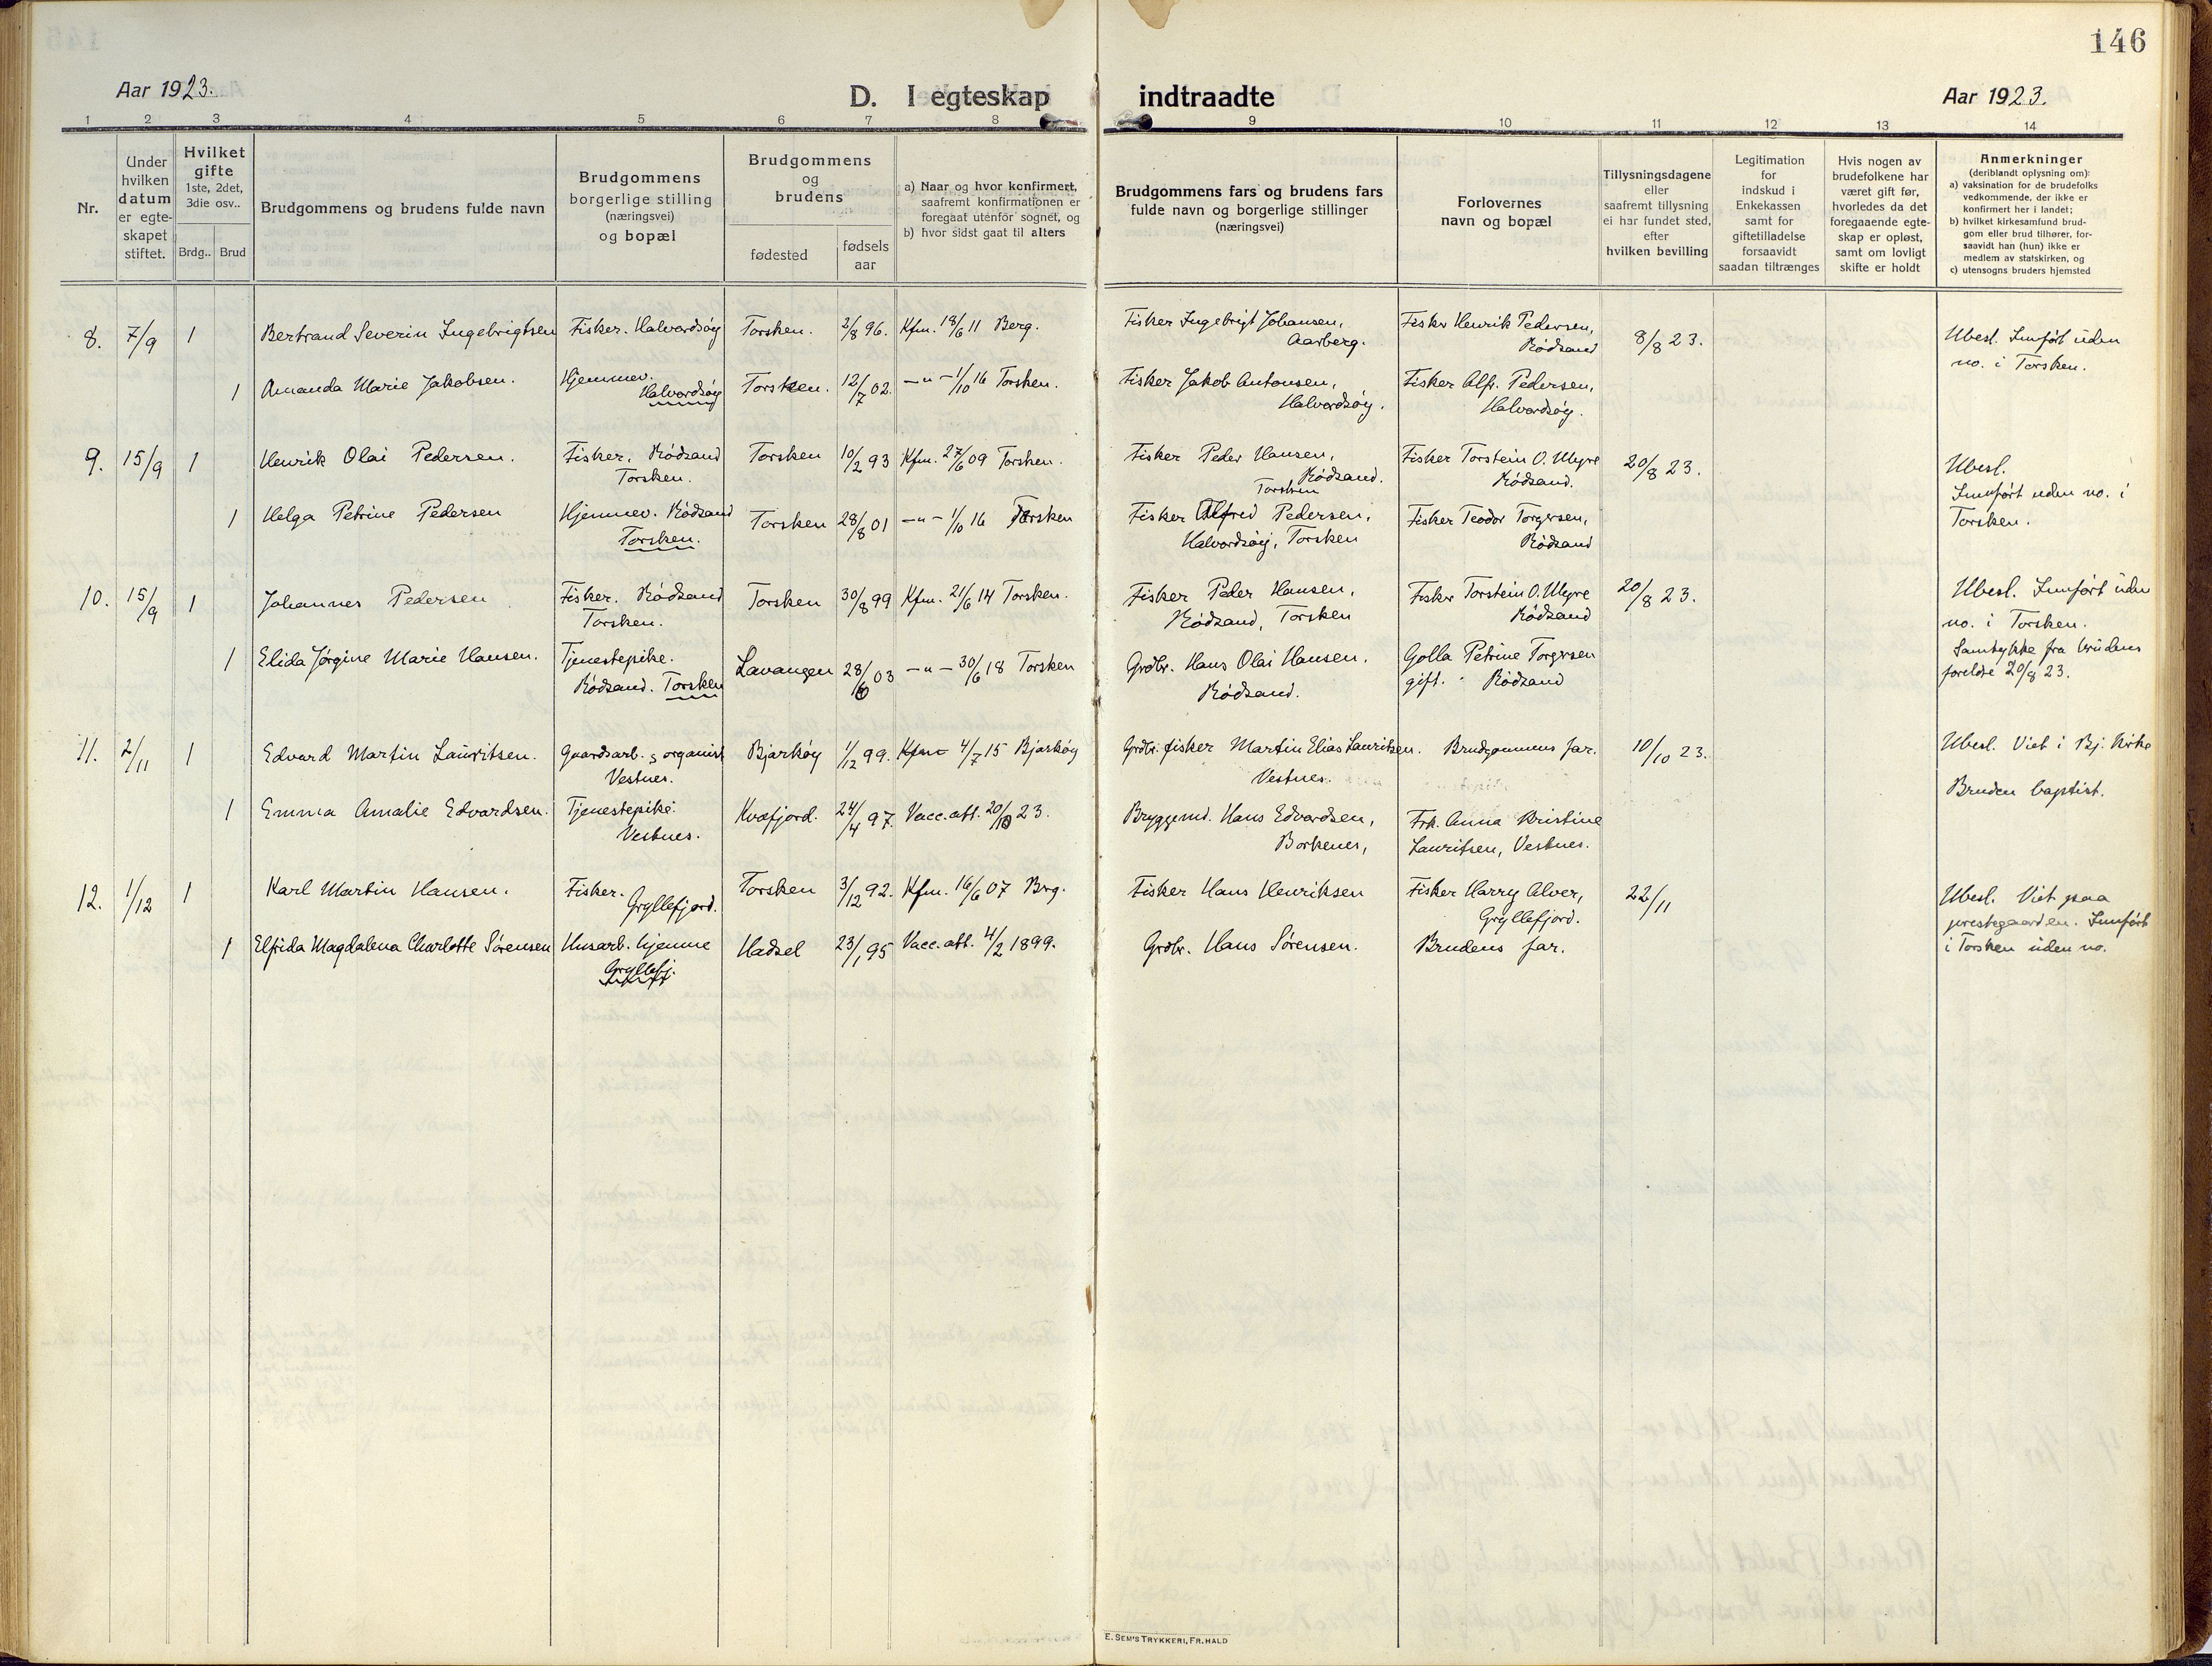 146
Aar 1923.
D. I egteskap indtraadte
Aar 1923.
1 2 3 4 5 6 7 8 9 10 11 12 13 14
Nr.
Under hvilken datum er egteskapet stiftet.
Hvilket gifte 1ste, 2det, 3die osv..
Brdg.. Brud
Brudgommens og brudens fulde navn
Brudgommens borgerlige stilling (næringsvei) og bopæl
Brudgommens og brudens
fødested
fødsels aar
a) Naar og hvor konfirmert, saafremt konfirmationen er foregaat utenfor sognet, og
b) hvor sidst gaat til alters
Brudgommens fars og brudens fars fulde navn og borgerlige stillinger (næringsvei)
Forlovernes navn og bopæl
Tillysningsdagene eller saafremt tillysning ei har fundet sted, efter hvilken bevilling
Legitimation for indskud i Enkekassen samt for giftetilladelse forsaavidt saadan tiltrænges
Hvis nogen av brudefolkene har været gift før, hvorledes da det foregaaende egteskap er opløst, samt om lovligt skifte er holdt
Anmerkninger (deriblandt oplysning om):
a) vaksination for de brudefolks vedkommende, der ikke er konfirmert her i landet;
b) hvilket kirkesamfund brudgom eller brud tilhører, forsaavidt han (hun) ikke er medlem av statskirken, og
c) utensogns bruders hjemsted
8. 7/9 1 Bertrand Severin Ingebrigtsen Fisker. Halvardsøy Torsken. 2/8 96. Kfm. 18/6 11 Berg. Fisker Ingebrigt Johansen, Aarberg. Fisker Henrik Pedersen, Rödsand 8/8 23. Ubesl. Innført uden no. i Torsken.
1 Amanda Marie Jakobsen. Hjemmev. Halvardsøy Torsken. 12/7 02. —"— 1/10 16 Torsken. Fisker Jakob Antonsen, Halvardsöy. Fisker Alfr. Pedersen, Halvardsöy.
9. 15/9 1 Henrik Olai Pedersen. Fisker, Rödsand Torsken. Torsken 10/2 93 Kfm. 27/6 09 Torsken. Fisker Peder Hansen, Rödsand. Torsken Fisker Torstein O. Myre Rödsand. 20/8 23. Ubesl. Innført uden no. i Torsken.
1 Helga Petrine Pedersen Hjemmev. Rödsand Torsken. Torsken 28/8 01 —"— 1/10 16 Torsken Fisker Alfred Pedersen, Halvardsöy, Torsken Fisker Teodor Torgersen, Rödsand
10. 15/9 1 Johannes Pedersen Fisker. Rödsand Torsken. Torsken 30/8 99 Kfm. 21/6 14 Torsken. Fisker Peder Hansen, Rödsand, Torsken Fisker Torstein O. Myre Rödsand 20/8 23. Ubesl. Innført uden no. i Torsken. Samtykke fra brudens foreldre 20/8 23.
1 Elida Jørgine Marie Hansen. Tjenestepike. Rödsand. Torsken Lavangen 28/6 03 —"— 30/6 18 Torsken Grdbr. Hans Olai Hansen. Rödsand. Golla Petrine Torgersen gift. Rödsand
11. 2/11 1 Edvard Martin Lauritsen. Gaardsarb. & organist Vestnes. Bjarköy 1/12 99. Kfm 4/7 15 Bjarköy Grdbr. fisker Martin Elias Lauritsen. Vestnes. Brudgommens far. 10/10 23. Ubesl. Viet i Bj. kirke Bruden baptist.
1 Emma Amalie Edvardsen. Tjenestepike. Vestnes. Kvæfjord. 24/4 97. Vacc.att. 20/10 23. Bryggemd. Hans Edvardsen, Borkenes, Frk. Anna Kristine Lauritsen, Vestnes.
12. 1/12 1 Karl Martin Hansen. Fisker. Gryllefjord. Torsken 3/12 92. Kfm. 16/6 07 Brg. Fisker Hans Henriksen Fisker Harry Alver, Gryllefjord. 22/11 Ubesl. Viet paa prestegaarden. Innført i Torsken uden no.
1 Elfrida Magdalena Charlotte Sørensen Husarb. hjemme Gryllefj. Hadsel 23/1 95 Vacc.att. 4/2 1899. Grdbr. Hans Sørensen. Brudens far.
E. SEM'S TRYKKERI, FR.HALD